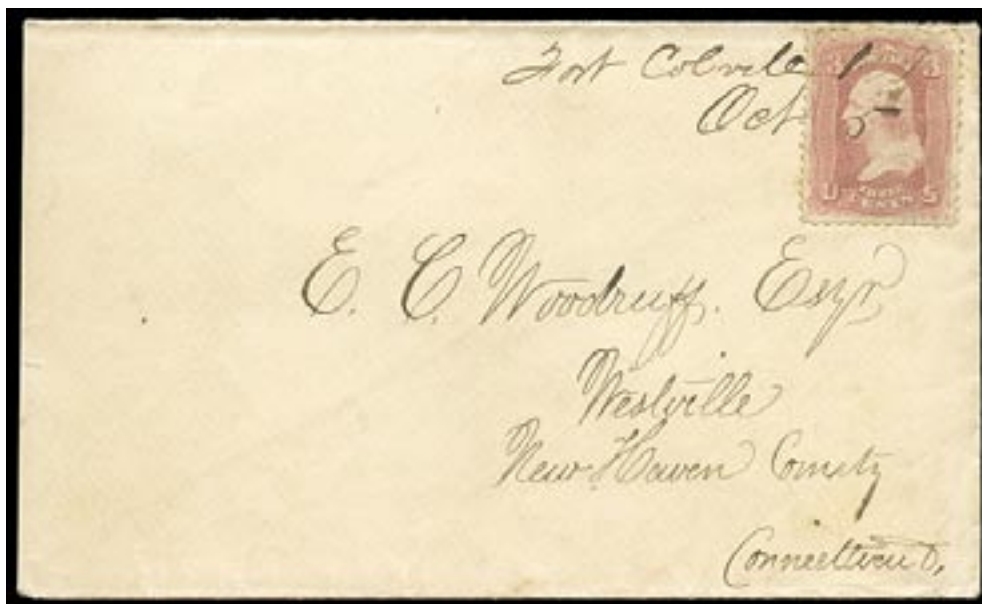 Fort Colvile
Oct 5
3 3
U S
THREE
CENTS
E. C. Woodruff. Esqr
Westville
New Haven County
Connecticut,